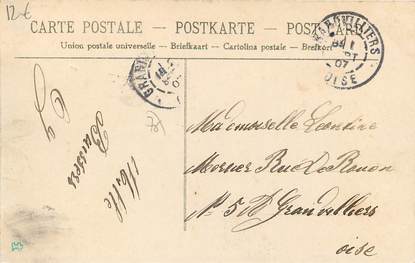 12-6
CARTE POSTALE — POSTKARTE — POSTCARD
Union postale universelle — Briefkaart — Cartolina postale — Brefkort
OISE
07
Mille
Baisers
Mademoiselle Leontine
Mercier Rue De Rouen
N° 5 A Grandvilliers
oise